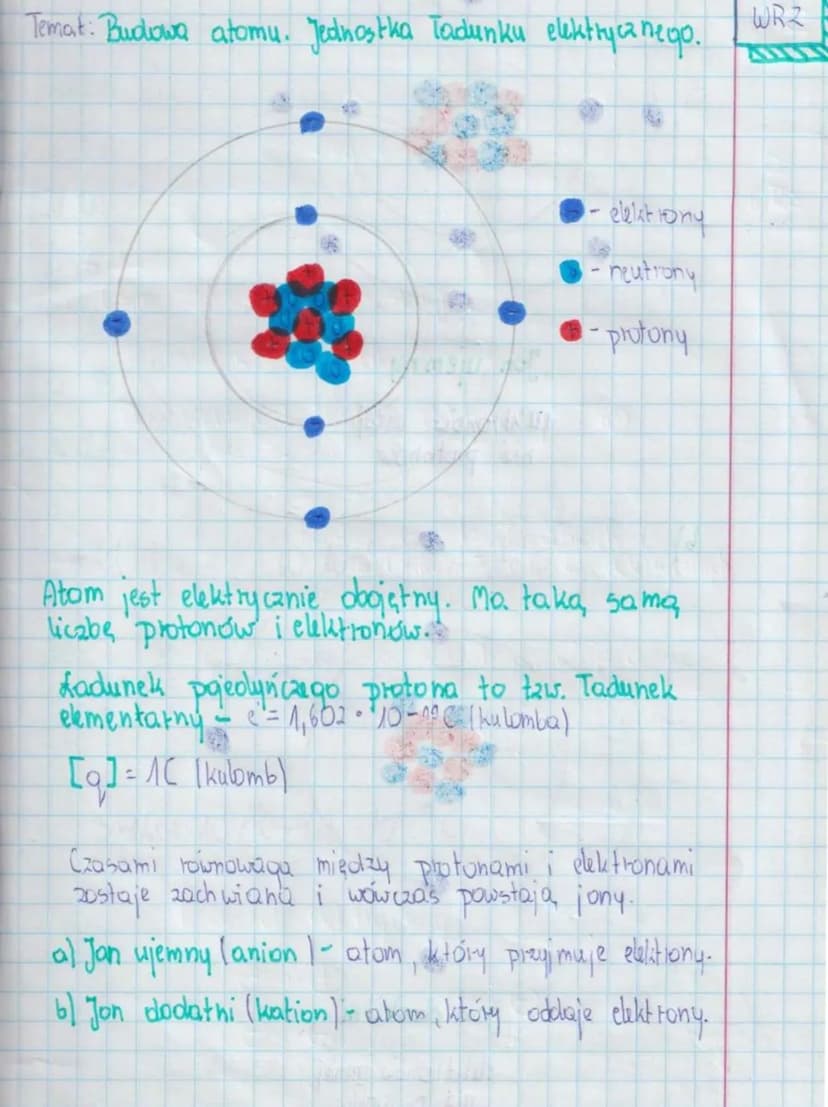 Temat: Budowa atomu. Jednostka ładunku elektrycznego.
WRZ
- elektrony
- neutrony
+ - protony
Atom jest elektrycznie obojętny. Ma taką samą
liczbę protonów i elektronów.
Ładunek pojedyńczego protona to tzw. ładunek
elementarny - e = 1,602 · 10-19C (kulomba)
[q] = 1C (kulomb)
Czasami równowaga między protonami i elektronami
zostaje zachwiana i wówczas powstają jony.
a) Jon ujemny (anion) - atom, który przyjmuje elektrony.
b) Jon dodatni (kation) - atom, który oddaje elektrony.